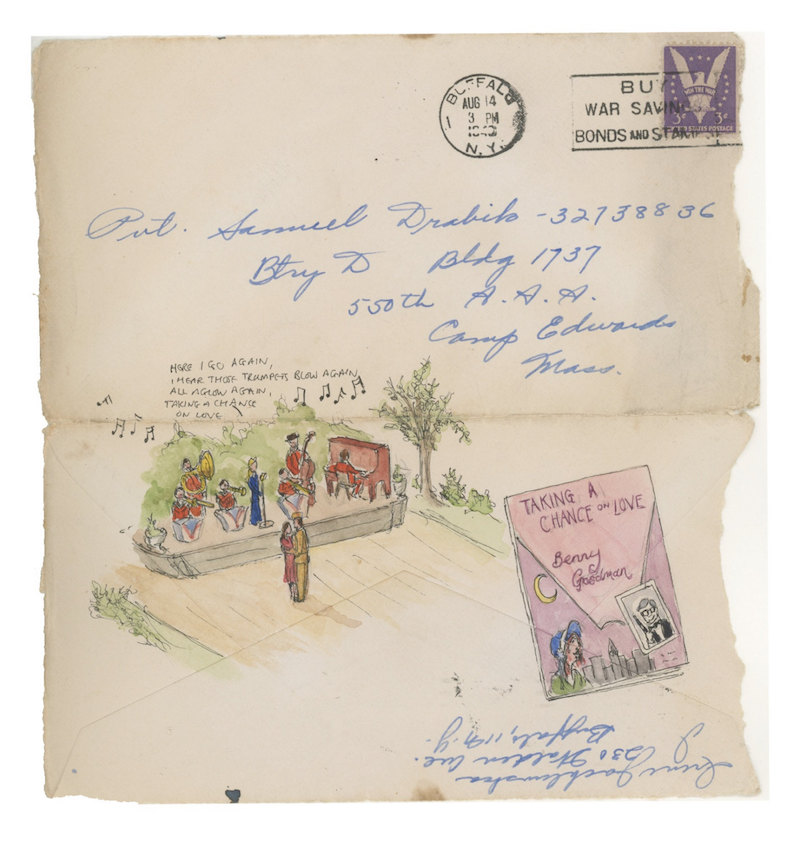 BUFFALO
AUG 14
3 PM
1943
N.Y.
1
BUY
WAR SAVINGS
BONDS AND STAMPS
WIN THE WAR
3¢ 3¢
UNITED STATES POSTAGE
Pvt. Samuel Drabik - 32738836
Btry D Bldg 1737
550th A.A.A.
Camp Edwards
Mass.
HERE I GO AGAIN,
I HEAR THOSE TRUMPETS BLOW AGAIN
ALL AGLOW AGAIN,
TAKING A CHANCE
ON LOVE
TAKING A
CHANCE ON LOVE
Benny
Goodman
Irene
230 Walden Ave.
Buffalo, 11 N.Y.